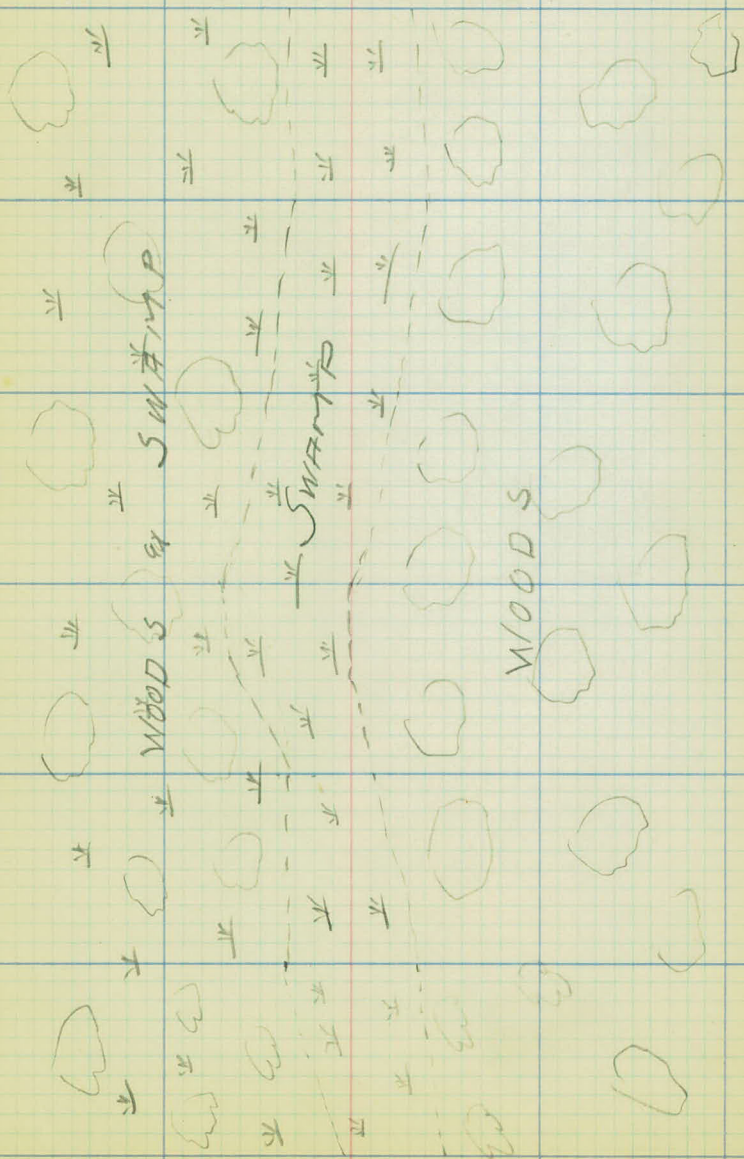 WOODS & SWAMP
SWAMP
WOODS